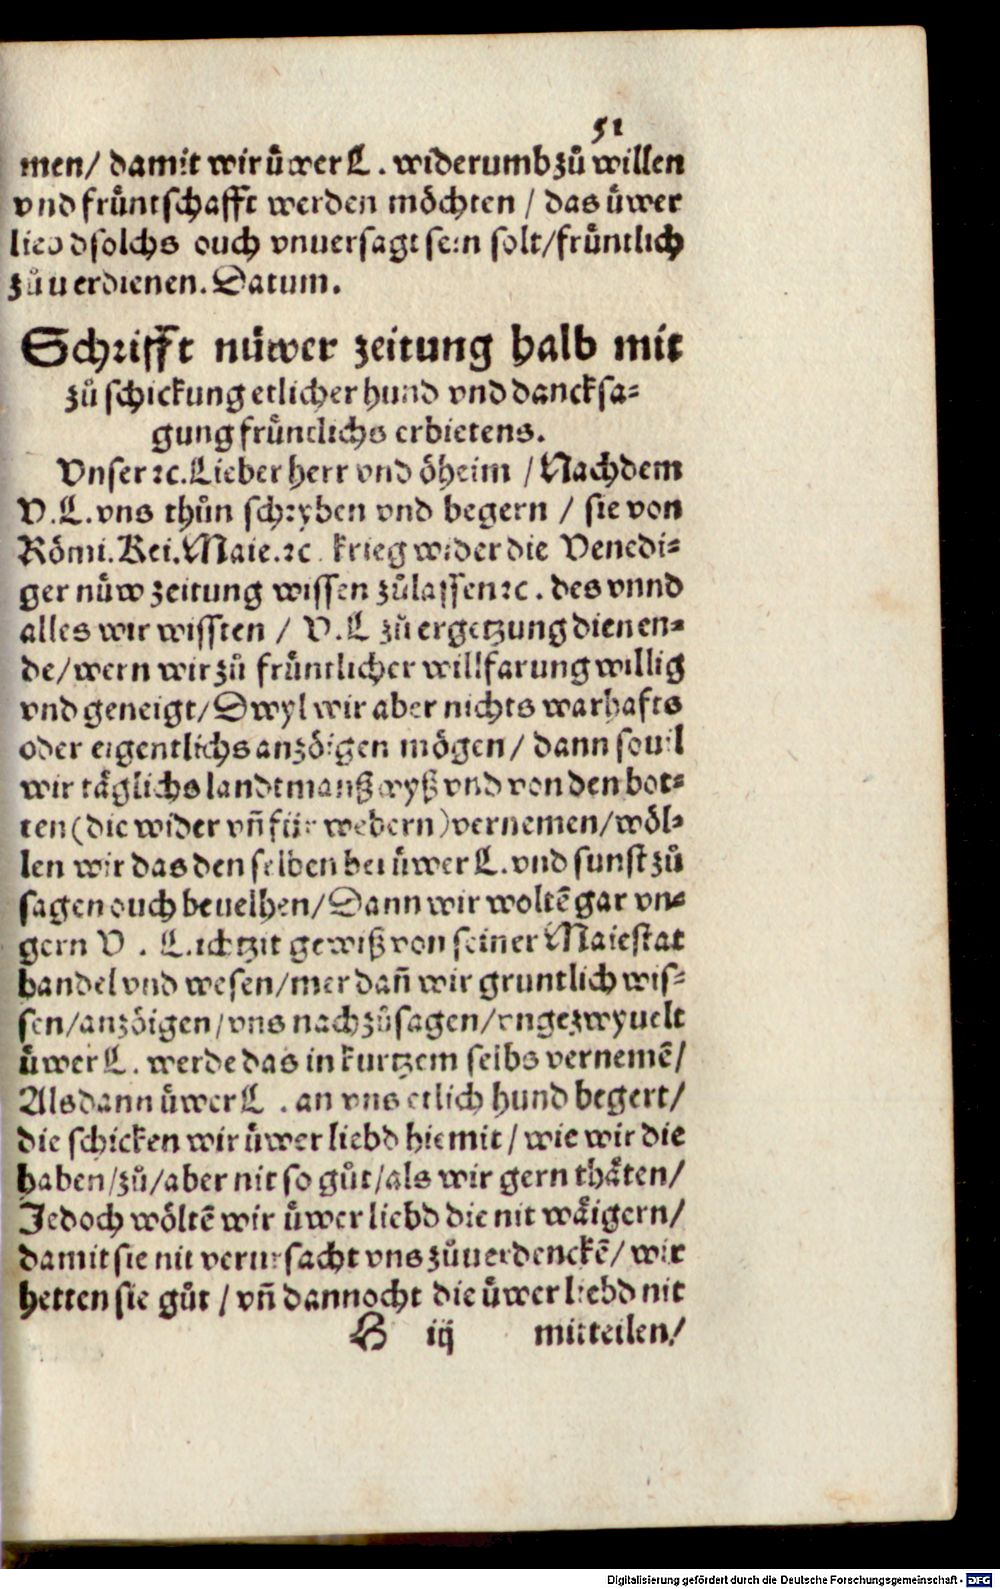 51
men/ damit wir üwer L. widerumb zů willen
vnd früntschafft werden möchten / das üwer
liebd solchs ouch vnuersagt sein solt/früntlich
zů uerdienen. Datum.
Schrifft nüwer zeitung halb mit
zů schickung etlicher hund vnd dancksa=
gung früntlichs erbietens.
Vnser ꝛc. Lieber herr vnd öheim / Nachdem
V.L. vns thůn schryben vnd begern / sie von
Römi. Kei. Maie. ꝛc. krieg wider die Venedi=
ger nüw zeitung wissen zůlassen ꝛc. des vnnd
alles wir wissten / V.L zů ergetzung dienen=
de/wern wir zů früntlicher willfarung willig
vnd geneigt/Dwyl wir aber nichts warhafts
oder eigentlichs anzöigen mögen/ dann souil
wir täglichs landtmanß wyß vnd von den bot=
ten (die wider vñ für webern) vernemen/wöl=
len wir das den selben bei üwer L. vnd sunst zů
sagen ouch beuelhen/Dann wir woltẽ gar vn=
gern V. L. ichtzit gewiß von seiner Maiestat
handel vnd wesen/mer dañ wir gruntlich wis=
sen/anzöigen/vns nachzůsagen/vngezwyuelt
üwer L. werde das in kurtzem selbs vernemẽ/
Als dann üwer L. an vns etlich hund begert/
die schicken wir üwer liebd hiemit / wie wir die
haben/zů/aber nit so gůt/als wir gern thäten/
Jedoch wöltẽ wir üwer liebd die nit wäigern/
damit sie nit verursacht vns zůuerdenckẽ/ wir
hetten sie gůt / vñ dannocht die üwer liebd nit
H iij mitteilen/
Digitalisierung gefördert durch die Deutsche Forschungsgemeinschaft - DFG